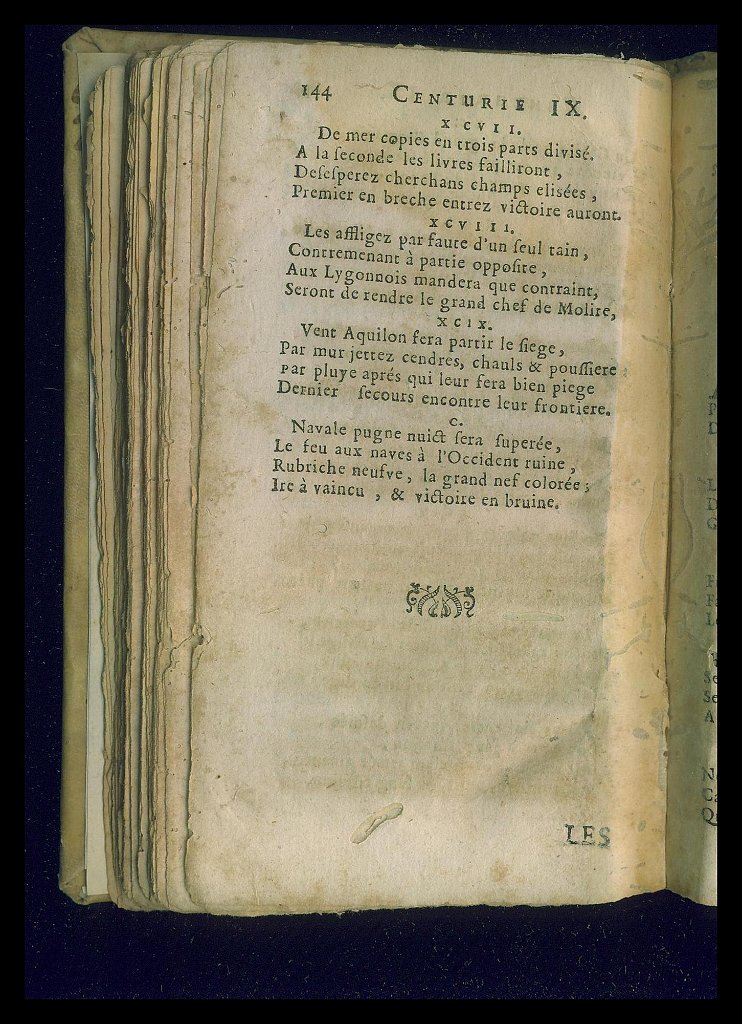 144 CENTURIE IX.
XCVII.
De mer copies en trois parts divisé.
A la ſeconde les livres failliront,
Deſeſperez cherchans champs elisées,
Premier en breche entrez victoire auront.
XCVIII.
Les affligez par faute d'un ſeul tain,
Contremenant à partie oppoſite,
Aux Lygonnois mandera que contraint,
Seront de rendre le grand chef de Molite,
XCIX.
Vent Aquilon fera partir le ſiege,
Par mur jettez cendres, chauls & pouſſiere
Par pluye aprés qui leur fera bien piege
Dernier ſecours encontre leur frontiere.
C.
Navale pugne nuict ſera ſuperée,
Le feu aux naves à l'Occident ruine,
Rubriche neufve, la grand nef colorée;
Ire à vaincu, & victoire en bruine.
LES